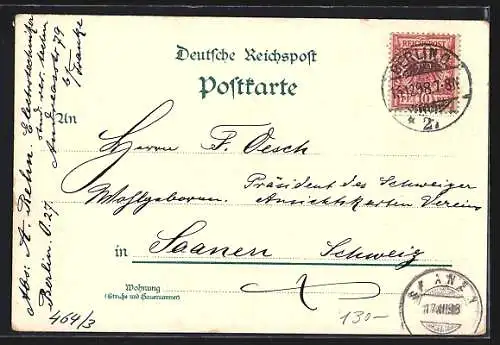 Deutsche Reichspost
Postkarte
An
Herrn F. Oesch
Präsident des Schweizer
Wohlgeboren. Ansichtskarten Vereins
in Saanen Schweiz
Wohnung
(Straße und Hausnummer)
Abs. A. Rehn. Elektrotechniker
Berlin. O. 27. Andreasstr. 79
464/3
130–
REICHSPOST
10
BERLIN O.
27
SAANEN
17.XII.98